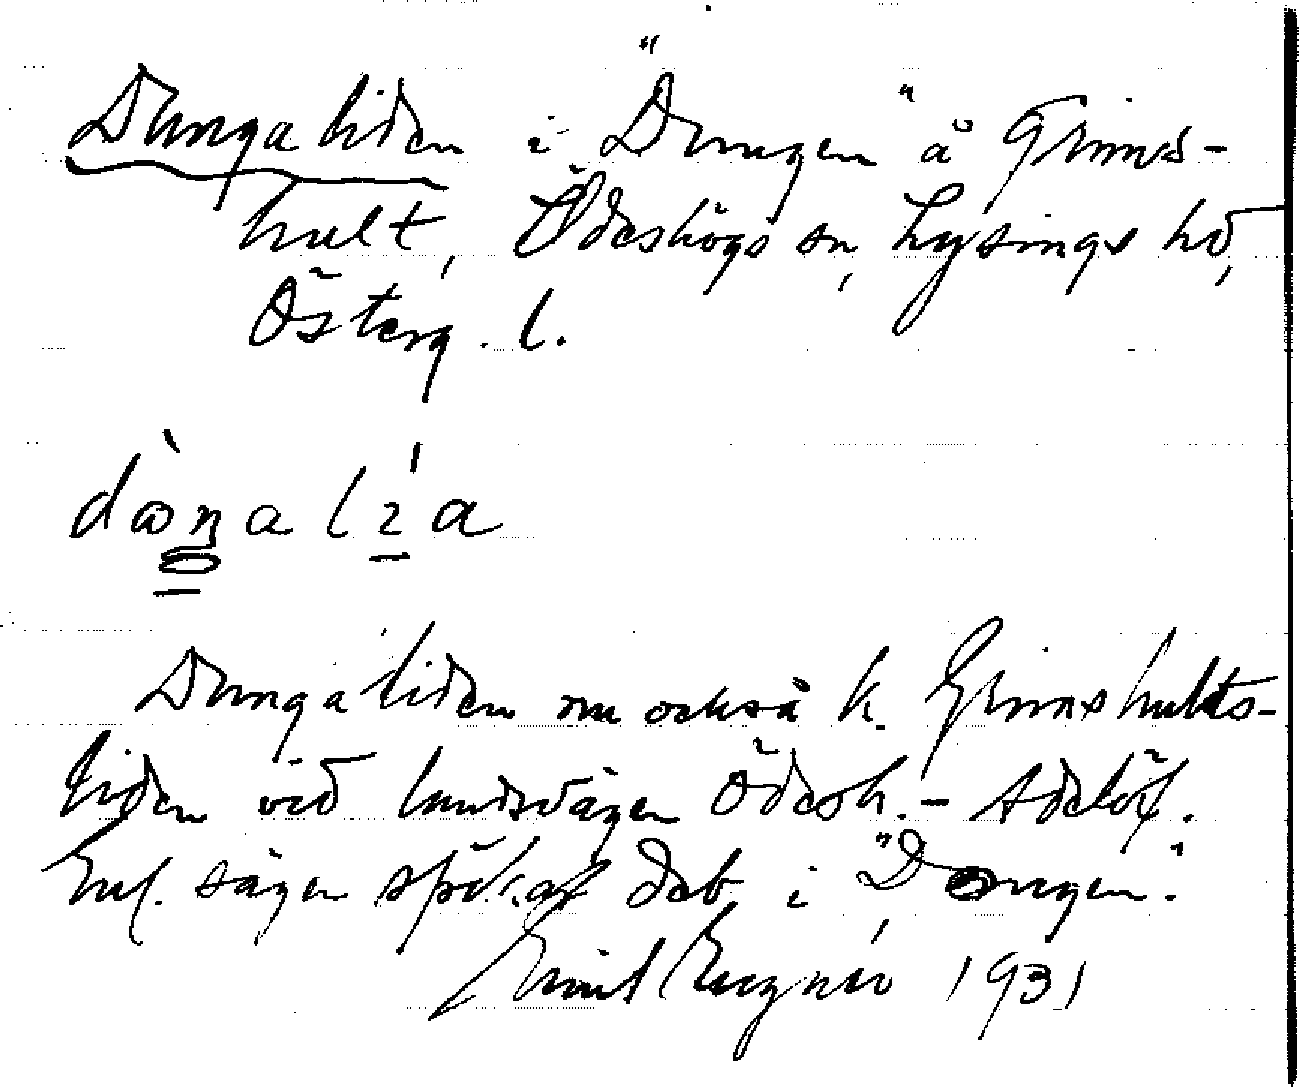 Dungaliden i "Dungen" å Grims-
hult, Ödeshögs sn, Lysings hd,
Österg. l.
Dungaliden nu också k. Grimshults-
liden vid landsvägen Ödesh. - Adelöf.
Enl. sägen spökar det i "Dungen."
Emil 1931